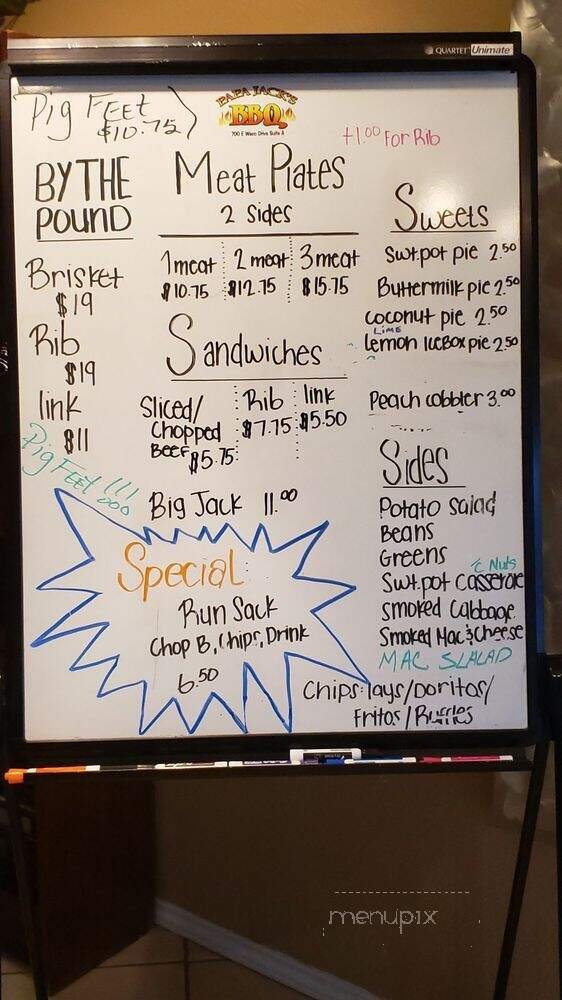 QUARTET Unimate
Pig FEEt
$10.75
PAPA JACK'S
BBQ
700 E Waco Drive Suite A
+1.00 For Rib
BY THE
POUND
Brisket
$19
Rib
$19
link
$11
Pig FEEt !!!
Meat Plates
2 Sides
1 meat 2 meat 3 meat
$10.75 $12.75 $15.75
Sandwiches
Sliced/
Chopped
BEEF $5.75
Rib
$7.75
link
$5.50
Big Jack 11.00
Special:
Run Sack
Chop B, Chips, Drink
6.50
Sweets
Swt.pot pie 2.50
Buttermilk pie 2.50
coconut pie 2.50
LIME
lemon IceBox pie 2.50
Peach cobbler 3.00
Sides
Potato Salad
Beans
Greens
c Nuts
Swt.pot Casserole
Smoked Cabbage
Smoked Mac & Cheese
MAC SLALAD
Chips: lays/Doritos/
Fritos/Ruffles
menupix